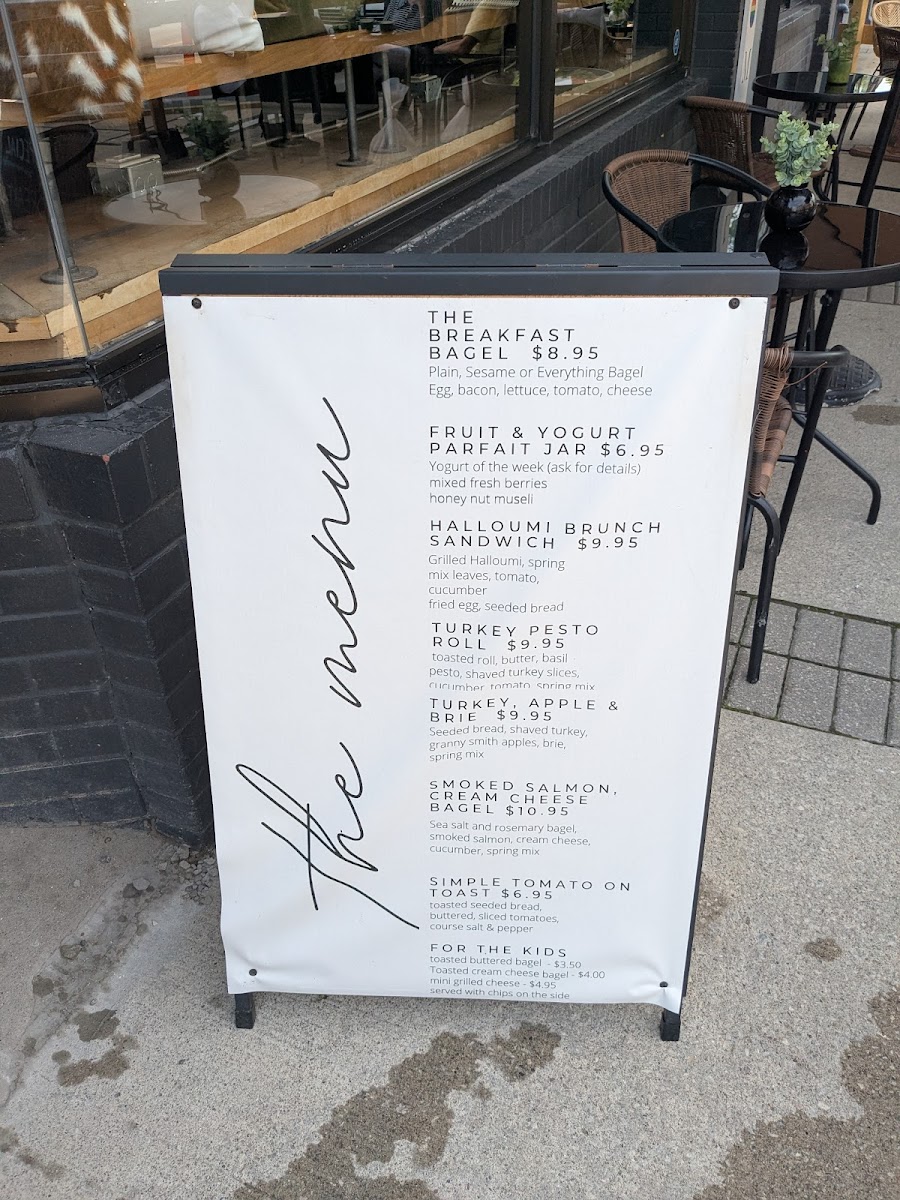 the menu
THE
BREAKFAST
BAGEL $8.95
Plain, Sesame or Everything Bagel
Egg, bacon, lettuce, tomato, cheese
FRUIT & YOGURT
PARFAIT JAR $6.95
Yogurt of the week (ask for details)
mixed fresh berries
honey nut museli
HALLOUMI BRUNCH
SANDWICH $9.95
Grilled Halloumi, spring
mix leaves, tomato,
cucumber
fried egg, seeded bread
TURKEY PESTO
ROLL $9.95
toasted roll, butter, basil
pesto, shaved turkey slices,
cucumber, tomato, spring mix
TURKEY, APPLE &
BRIE $9.95
Seeded bread, shaved turkey,
granny smith apples, brie,
spring mix
SMOKED SALMON,
CREAM CHEESE
BAGEL $10.95
Sea salt and rosemary bagel,
smoked salmon, cream cheese,
cucumber, spring mix
SIMPLE TOMATO ON
TOAST $6.95
toasted seeded bread,
buttered, sliced tomatoes,
course salt & pepper
FOR THE KIDS
toasted buttered bagel - $3.50
Toasted cream cheese bagel - $4.00
mini grilled cheese - $4.95
served with chips on the side